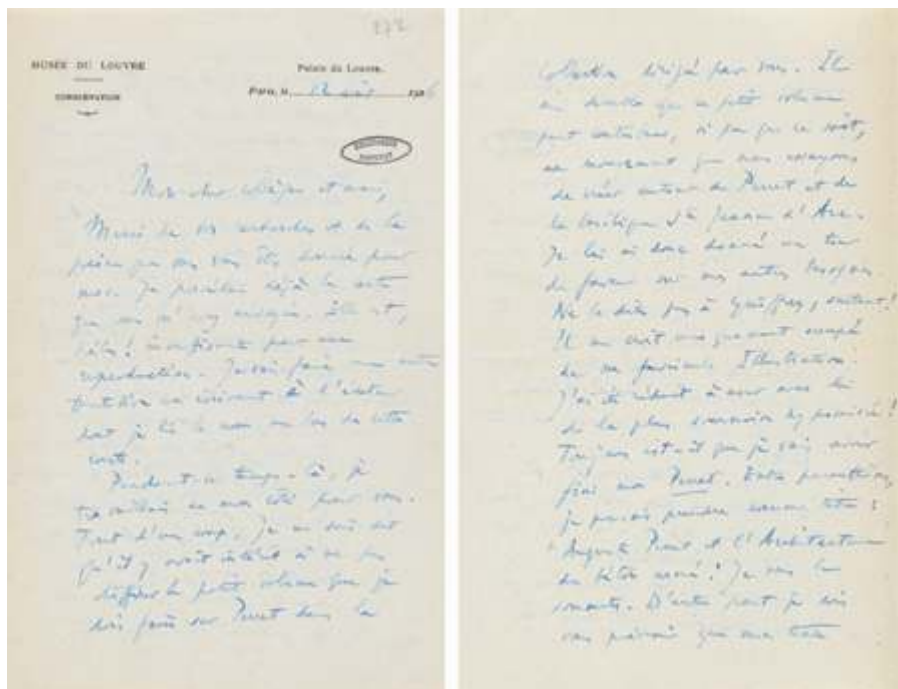 272
MUSÉE DU LOUVRE
CONSERVATION
Palais du Louvre.
Paris, le 12 août 1926
Mon cher collègue et ami,
Merci de vos recherches et de la
pièce que vous avez bien donnée pour
moi. Je possédais déjà la carte
que vous m'envoyez. Elle est,
hélas ! insuffisante pour une
reproduction. J'aurai une autre
peut-être en écrivant à l'éditeur
dont je lis le nom au bas de cette
carte.
Pendant ce temps-là, je
travaillais de mon côté pour vous.
Tout d'un coup, je me suis dit
qu'il y avait intérêt à ne pas
différer le petit volume que je
dois faire sur Perret dans la
collection dirigée par vous. Il
me semble que ce petit volume
peut contribuer, si peu que ce soit,
au mouvement que nous essayons
de créer autour de Perret et de
la basilique Ste Jeanne d'Arc.
Je lui ai donc donné un tour
de faveur sur mes autres besognes.
Ne le dites pas à Guiffrey, surtout !
Il me croit uniquement occupé
de
J'ai été réduit à user avec lui
de la plus hypocrisie !
Toujours est-il que je vais avoir
fini mon Perret. Entre parenthèses,
je pensais prendre comme titre :
"Auguste Perret et l'Architecture
du béton armé." Je vous le
soumets. D'autre part je dois
vous prévenir que mon texte